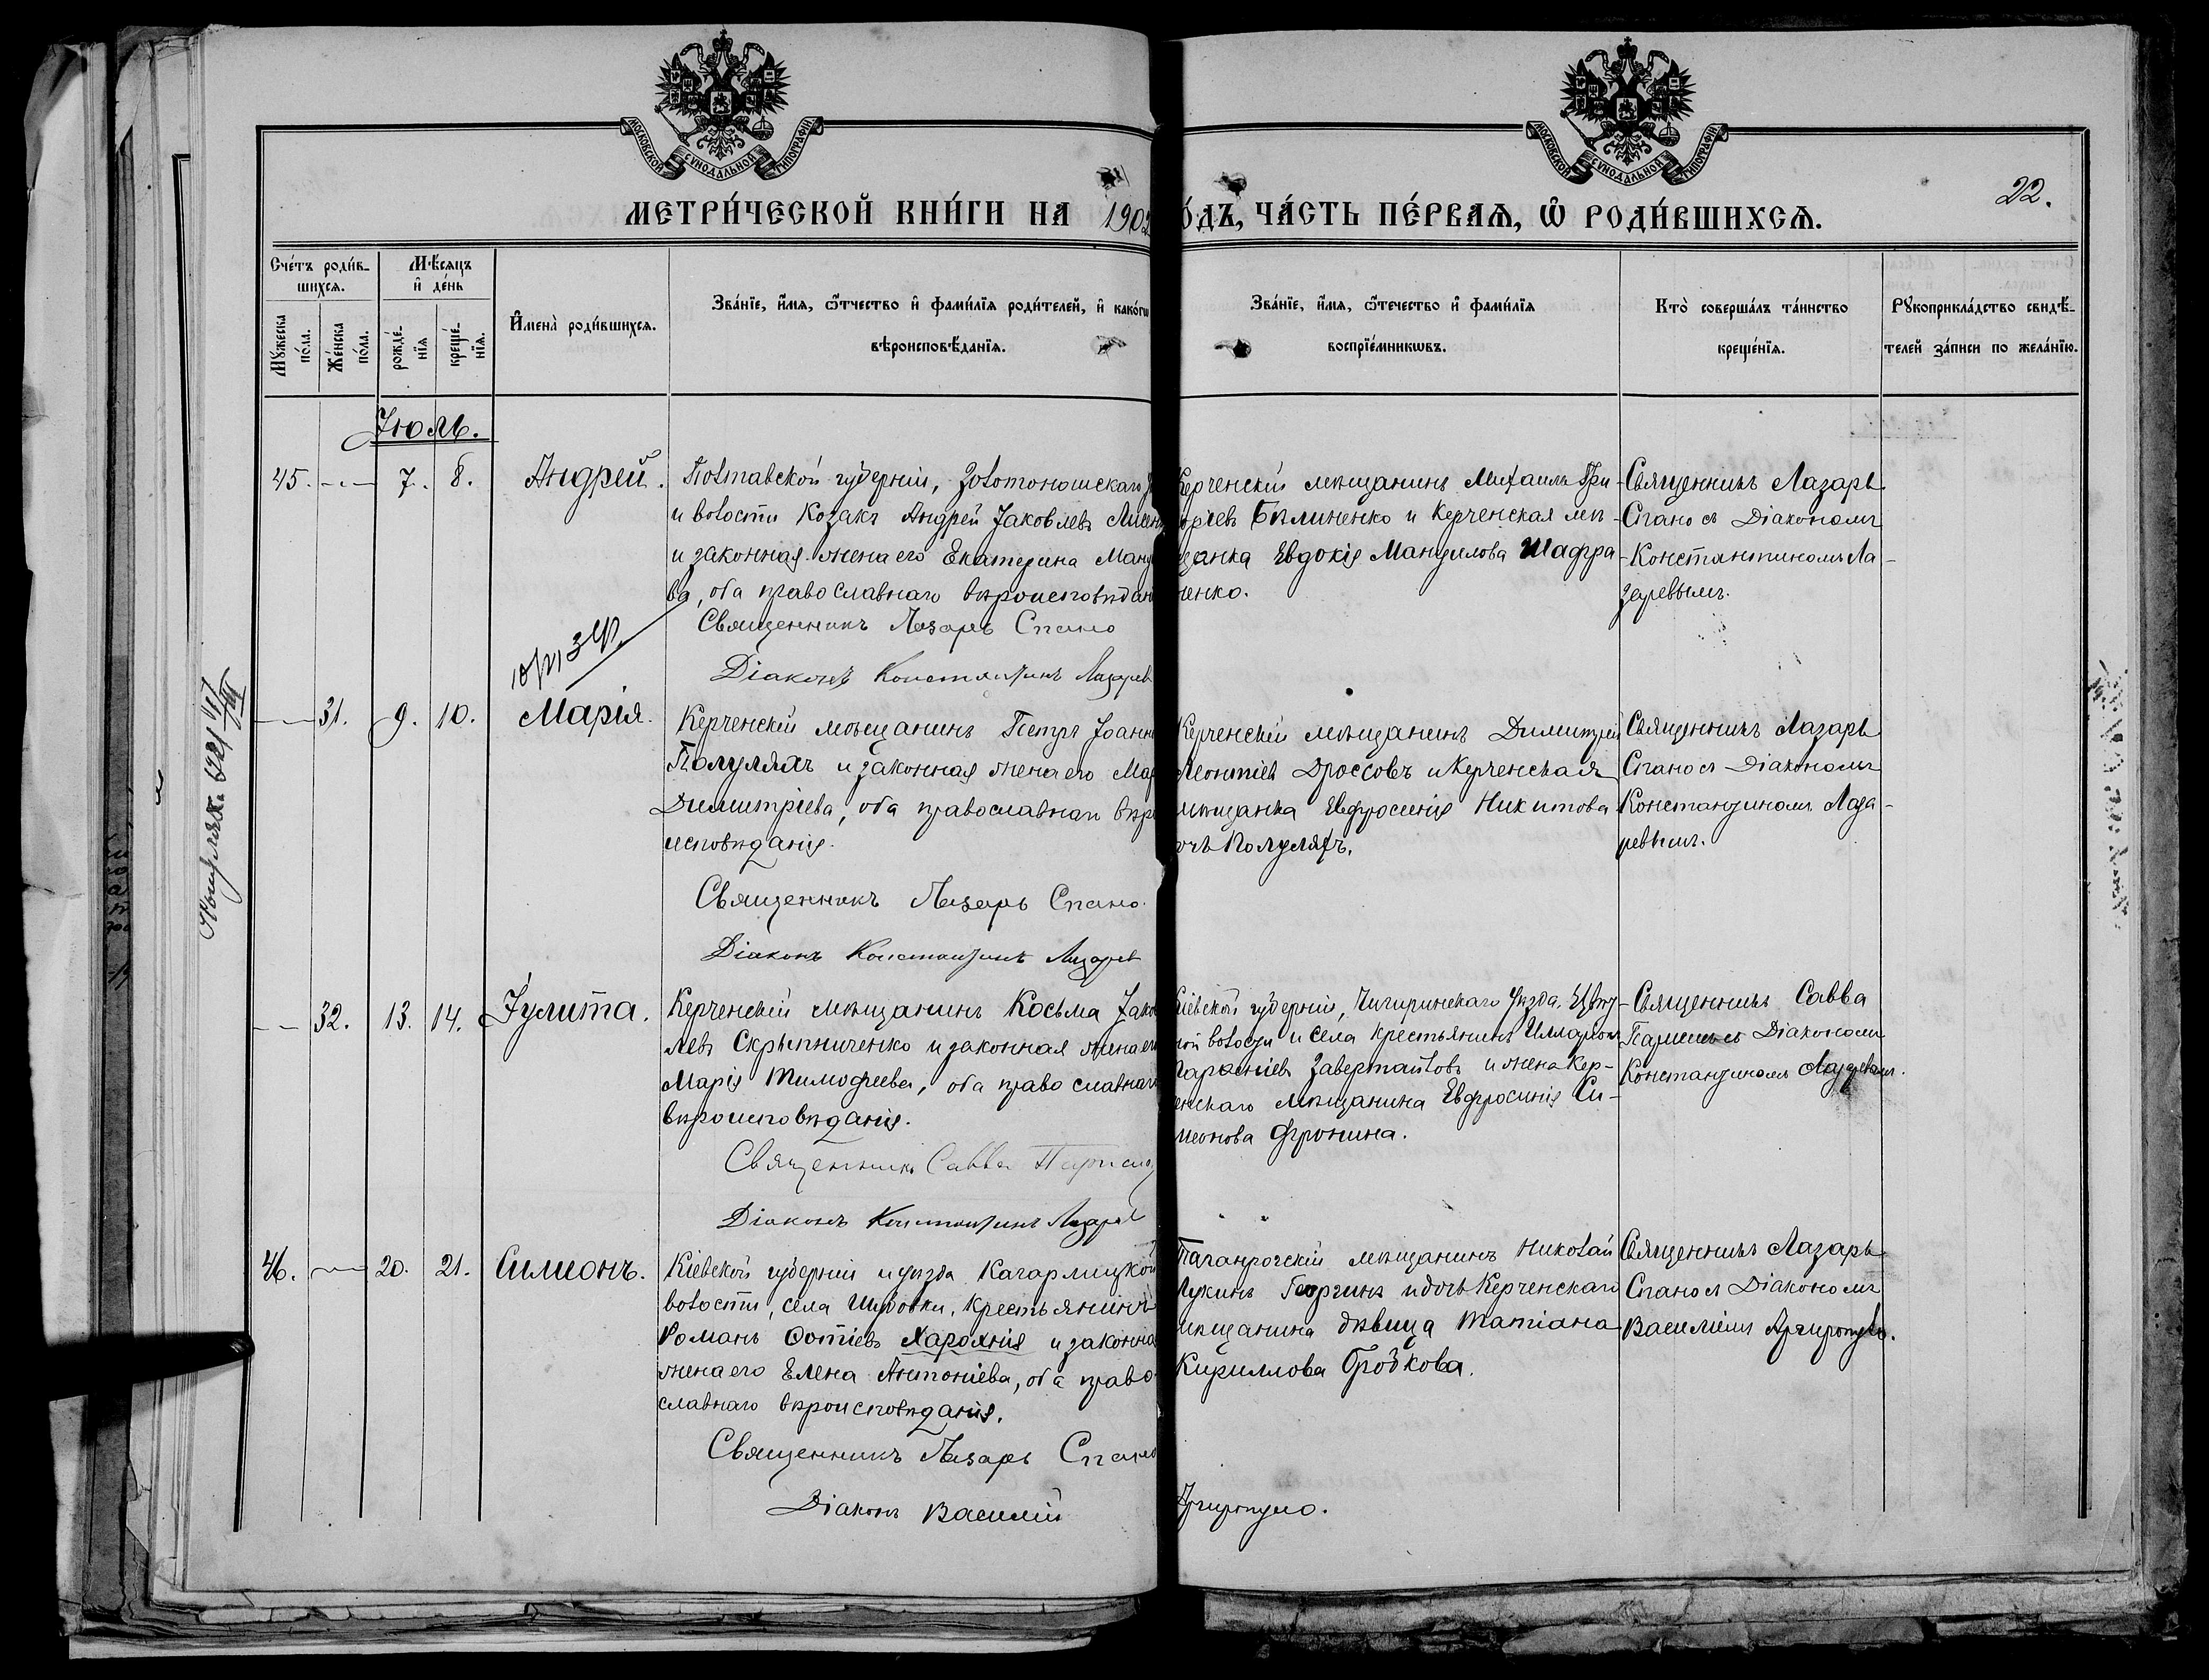 МОСКОВСКОЙ СѴНОДАЛЬНОЙ ТИПОГРАФІИ
МОСКОВСКОЙ СѴНОДАЛЬНОЙ ТИПОГРАФІИ
22.
МЕТРИ́ЧЕСКОЙ КНИ́ГИ НА 1902 ѺДЪ, ЧА́СТЬ ПЕ́РВАѦ, Ѡ҃ РОДИ́ВШИХСѦ.
Сче́тъ роди́в-
шихсѧ.
Мꙋ́жеска по́ла.
Же́нска по́ла.
Мѣ́сѧцъ
и҆ де́нь
рожде́-
нїѧ
креще́-
нїѧ.
И҆мена̀ роди́вшихсѧ.
Зва́нїе, и҆́мѧ, ѻ҆́тчество и҆ фами́лїѧ роди́телей, и҆ како́гѡ
вѣроисповѣ́данїѧ.
Зва́нїе, и҆́мѧ, ѻ҆́течество и҆ фами́лїѧ
воспрїе́мникѡвъ.
Кто̀ соверша́лъ та́инство
креще́нїѧ.
Рꙋкоприкла́дство свидѣ́-
телей за́писи по жела́нїю.
Іюль.
45. 7. 8. Андрей.
Полтавской губерніи, Золотоношскаго у
и волости Козакъ Андрей Іаковлевъ Лисен
и законная жена его Екатерина Ману
ва, оба православнаго вѣроисповѣдан
Священникъ Лазарь Спано
Діаконъ Константинъ Лазарев
Керченскій мѣщанинъ Михаилъ Гри-
оріевъ Билиненко и Керченская мѣ-
щанка Евдокія Мануилова Шафра-
ненко.
Священникъ Лазарь
Спано съ Діакономъ
Константиномъ Ла-
заревымъ.
31. 9. 10. Марія.
Керченскій мѣщанинъ Петръ Іоанн
Полуляхъ и законная жена его Мар
Димитріева, оба православнаго вѣро
исповѣданія.
Священникъ Лазарь Спано.
Діаконъ Константинъ Лазарев
Керченскій мѣщанинъ Димитрій
Леонтіевъ Дроссовъ и Керченская
мѣщанка Евфросинія Никитова
очь Полуляхъ.
Священникъ Лазарь
Спано съ Діакономъ
Константиномъ Лаза-
ревымъ.
32. 13. 14. Іулита.
Керченскій мѣщанинъ Косьма Іако
левъ Скрыпниченко и законная жена ег
Марія Тимофеева, оба православнаго
вѣроисповѣданія.
Священникъ Савва
Діаконъ Константинъ Лазарев
Кіевской губерніи, Чигиринскаго уѣзда,
ной волости и села крестьянинъ Илларіонъ
Завертайловъ и жена Кер-
енскаго мѣщанина Евфросинія Си-
меонова Фронина.
Священникъ Савва
съ Діакономъ
Константиномъ Лазаревымъ.
46. 20. 21. Симеонъ.
Кіевской губерніи и уѣзда Кагарлицкой
волости, села крестьянинъ
Романъ Фотіевъ Харохнія и законна
жена его Елена Антоніева, оба право-
славнаго вѣроисповѣданія.
Священникъ Лазарь Спано
Діаконъ Василій Аргиропуло.
Таганрогскій мѣщанинъ Николай
Лукинъ Георгинъ и дочь Керченскаго
мѣщанина дѣвица Татіана
Кириллова Гродкова.
Священникъ Лазарь
Спано съ Діакономъ
Василіемъ Аргиропуло.